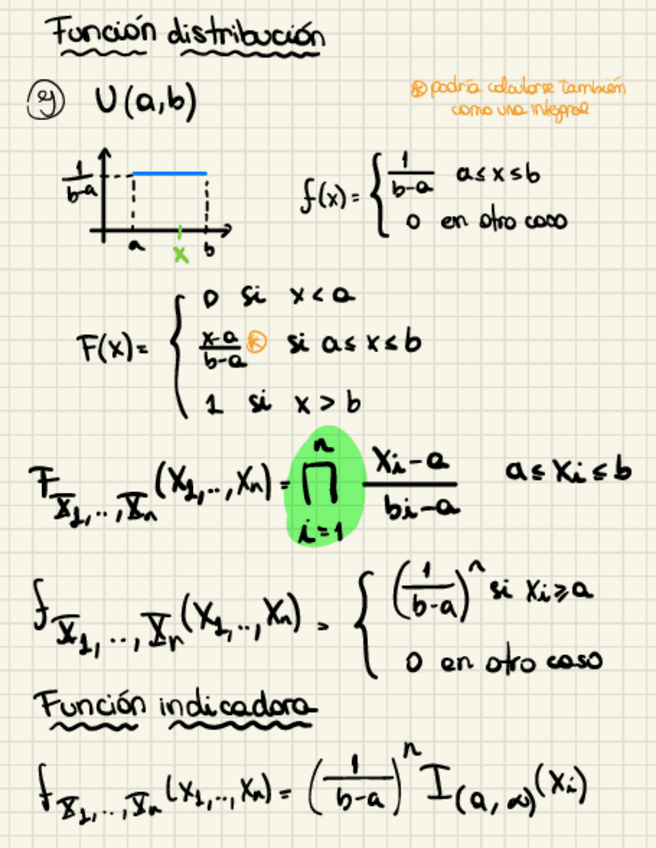 Función distribución
ej U(a,b)
* podría calcularse también
como una integral
1/(b-a)
a x b
f(x) = { 1/(b-a) a ≤ x ≤ b
0 en otro caso
F(x) = { 0 si x < a
(x-a)/(b-a) * si a ≤ x ≤ b
1 si x > b
F_X₁,..,Xₙ (x₁,..,xₙ) = ∏ⁿᵢ₌₁ (xi-a)/(bi-a) a ≤ xi ≤ b
f_X₁,..,Xₙ (x₁,..,xₙ) = { (1/(b-a))ⁿ si xi ≥ a
0 en otro caso
Función indicadora
f_X₁,..,Xₙ (x₁,..,xₙ) = (1/(b-a))ⁿ I_(a,∞) (xi)